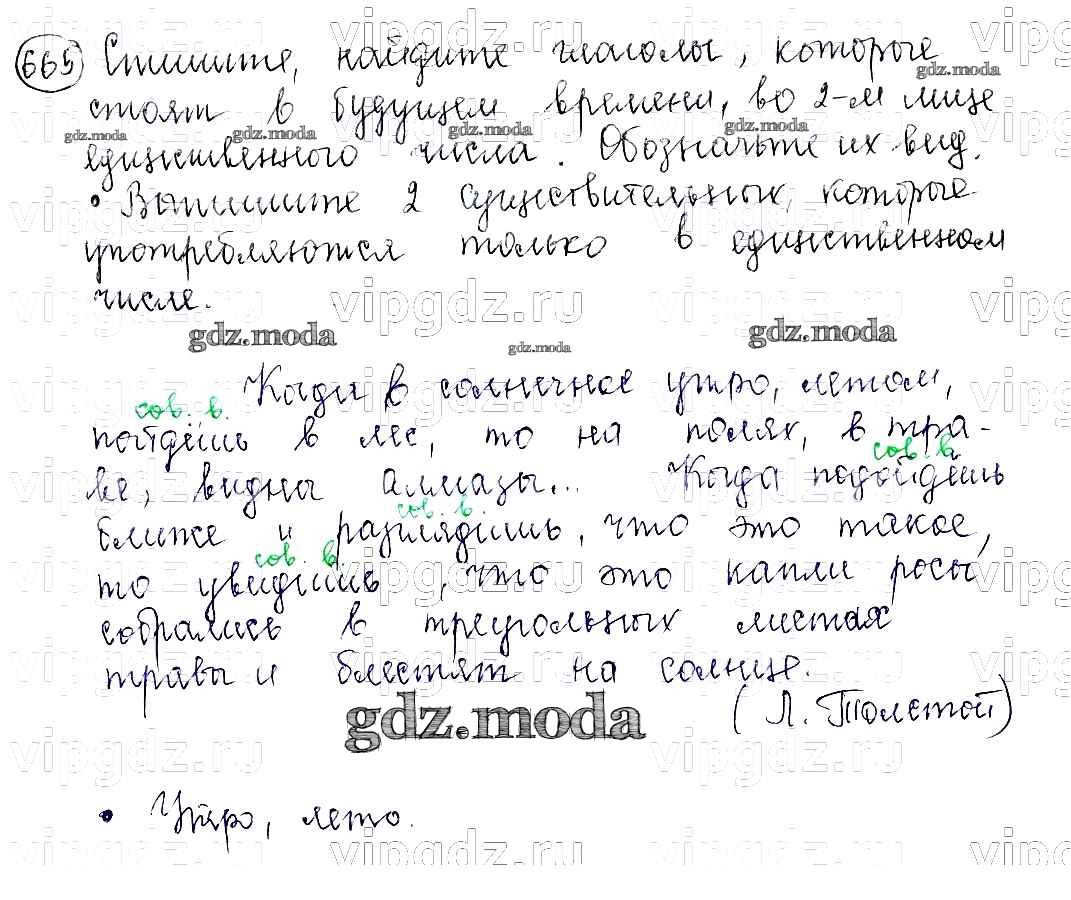 665 Спишите, найдите глаголы, которые
стоят в будущем времени, во 2-м лице
единственного числа. Обозначьте их вид.
• Выпишите 2 существительных, которые
употребляются только в единственном
числе.
Когда в солнечное утро, летом,
сов. в.
пойдёшь в лес, то на полях, в тра-
сов. в
ве, видны алмазы... Когда подойдёшь
сов. в.
ближе и разглядишь, что это такое,
сов. в
то увидишь, что это капли росы
собрались в треугольных листах
травы и блестят на солнце.
(Л. Толстой)
• Утро, лето.
vipgdz.ru
gdz.moda